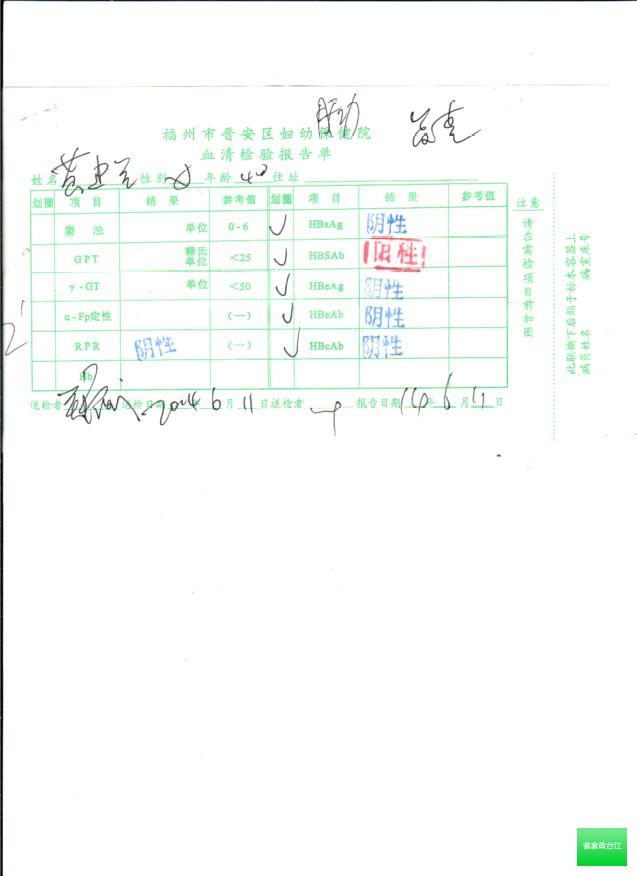 福州市晋安区妇幼保健院
血清检验报告单
姓名 性别 女 年龄 48 住址
划圈 项目 结果 参考值 划圈 项目 结果 参考值
磨浊 单位 0-6 HBsAg 阴性
GPT 赖氏单位 <25 HBSAb 阳性
γ-GT 单位 <50 HBeAg 阴性
α-Fp定性 (一) HBeAb 阴性
RPR 阴性 (一) HBcAb 阴性
Hb
送检者 送检日期 2014 6 月 11 日 送检者 报告日期 14 年 6 月 11 日
注意
请在需检项目前加圈
此联撕下后贴于标本容器上
病员姓名 病室床号
省家政台江